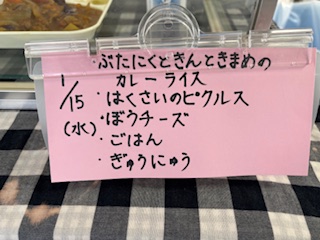 ・ぶたにくときんときまめの
カレーライス
1/15
(水)
・はくさいのピクルス
・ぼうチーズ
・ごはん
・ぎゅうにゅう